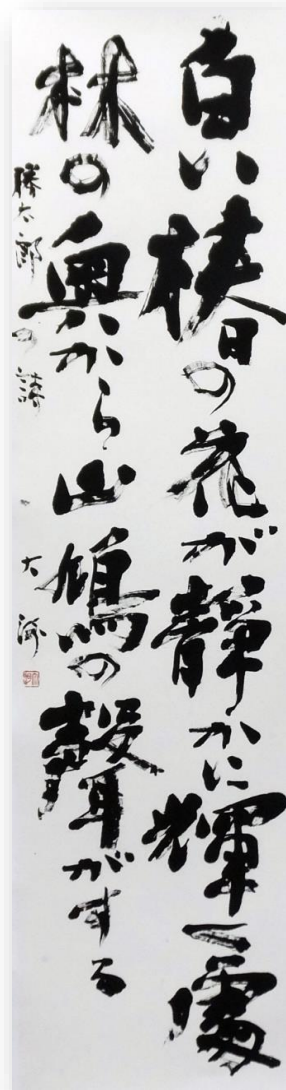 白い椿の花が静かに輝く處
林の奥から山鳩の聲がする
勝太郎の詩 大